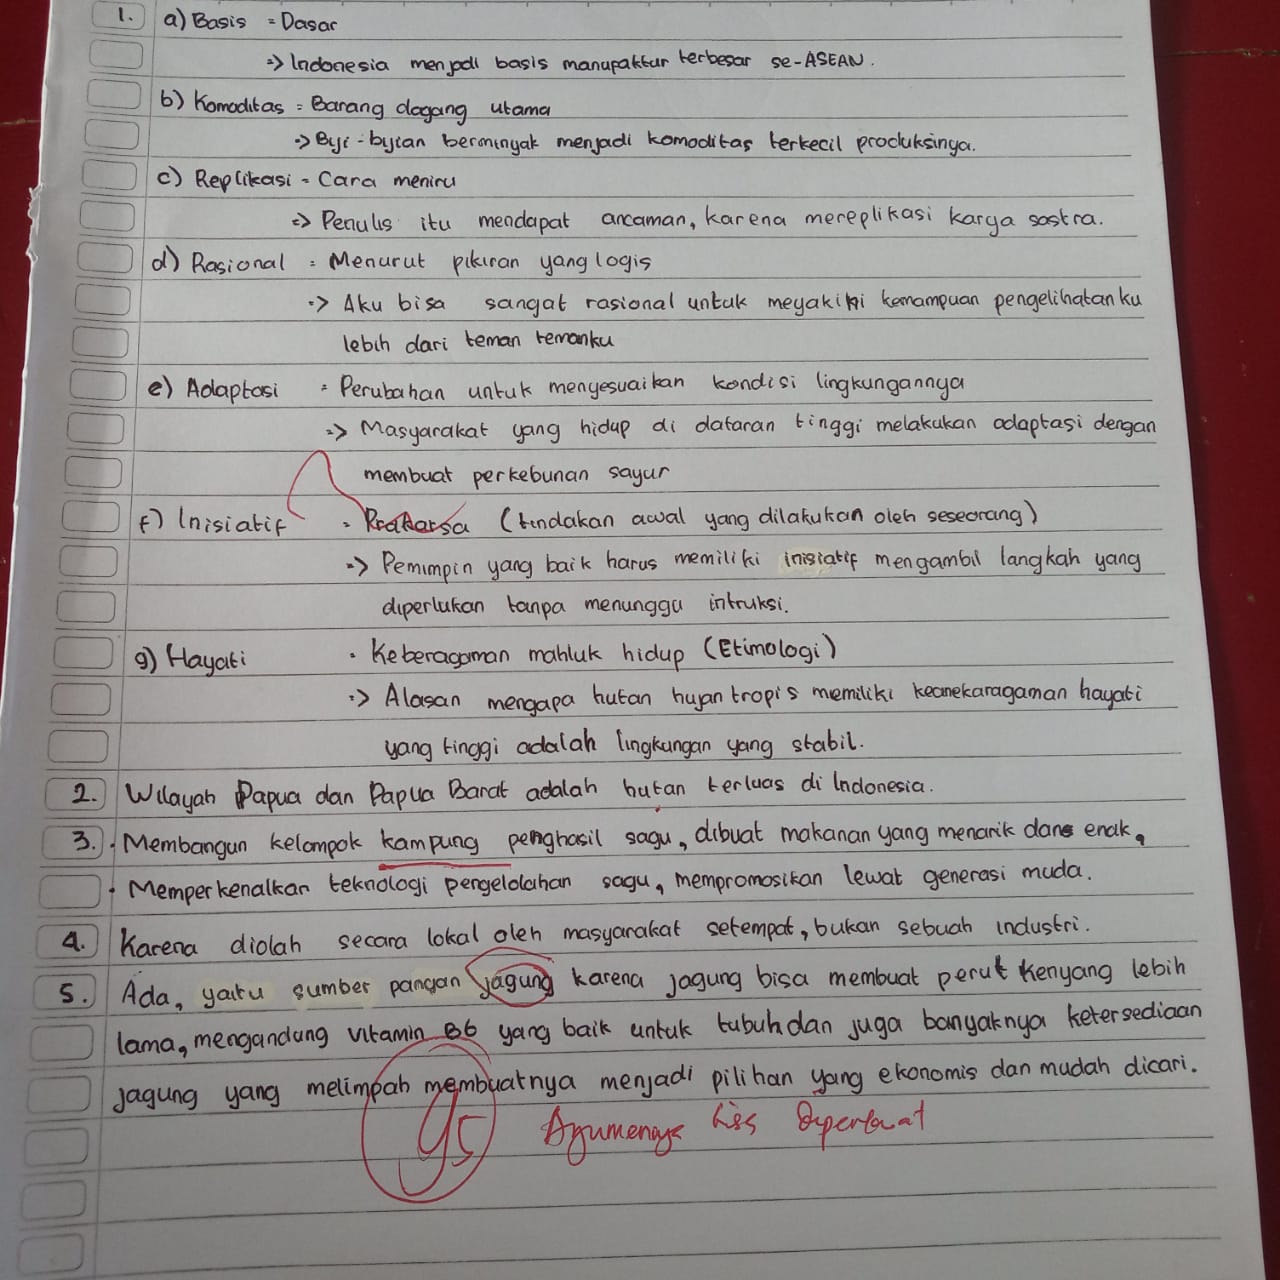 1. a) Basis = Dasar
=> Indonesia menjadi basis manupaktur terbesar se-ASEAN.
b) Komoditas = Barang dagang utama
=> Biji-bijian berminyak menjadi komoditas terkecil produksinya.
c) Replikasi = Cara meniru
=> Penulis itu mendapat ancaman, karena mereplikasi karya sastra.
d) Rasional = Menurut pikiran yang logis
=> Aku bisa sangat rasional untuk meyakini kemampuan pengelihatanku
lebih dari teman temanku
e) Adaptasi = Perubahan untuk menyesuaikan kondisi lingkungannya
=> Masyarakat yang hidup di dataran tinggi melakukan adaptasi dengan
membuat perkebunan sayur
f) Inisiatif = Prakarsa (tindakan awal yang dilakukan oleh seseorang)
=> Pemimpin yang baik harus memiliki inisiatif mengambil langkah yang
diperlukan tanpa menunggu intruksi.
g) Hayati = Keberagaman mahluk hidup (Etimologi)
=> Alasan mengapa hutan hujan tropis memiliki keanekaragaman hayati
yang tinggi adalah lingkungan yang stabil.
2. Wilayah Papua dan Papua Barat adalah hutan terluas di Indonesia.
3. • Membangun kelompok kampung penghasil sagu, dibuat makanan yang menarik dan enak,
• Memperkenalkan teknologi pengelolahan sagu, mempromosikan lewat generasi muda.
4. Karena diolah secara lokal oleh masyarakat setempat, bukan sebuah industri.
5. Ada, yaitu sumber pangan jagung karena jagung bisa membuat perut kenyang lebih
lama, mengandung vitamin B6 yang baik untuk tubuh dan juga banyaknya ketersediaan
jagung yang melimpah membuatnya menjadi pilihan yang ekonomis dan mudah dicari.
95 Diperkuat